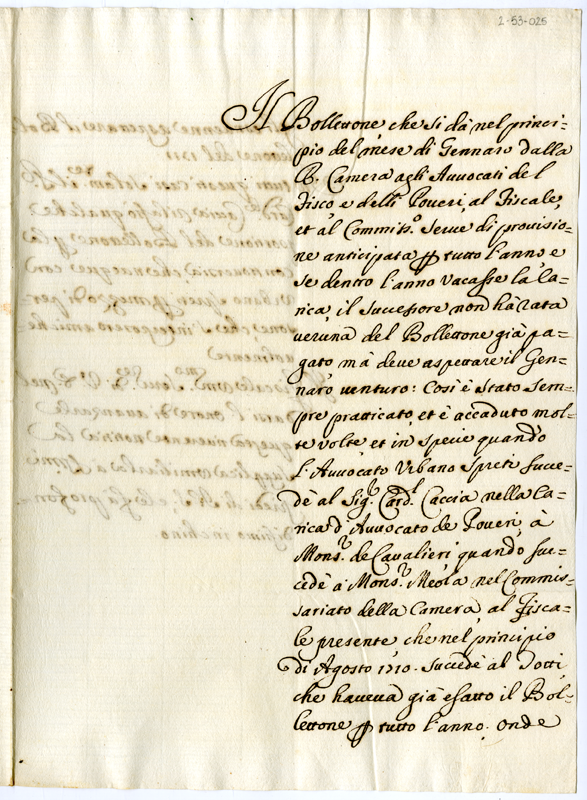 2-53-025
Il Bollettone che si dà nel princi-
pio del mese di Gennaro dalla
R. Camera agli Avvocati del
Fisco e delli Poveri, al Fiscale,
et al Commiss.o serve di provisio-
ne anticipata p tutto l'anno e
se dentro l'anno vacasse la Ca-
rica, il successore non hà rata
veruna del Bollettone già pa-
gato mà deve aspettare il Gen-
naro venturo: Così è stato sem-
pre pratticato, et è accaduto mol-
te volte et in specie quando
l'Avvocato Urbano Spreti succe-
dè al Sig.r Card.l Caccia nella Ca-
rica d'Avvocato de Poveri, à
Mons.r de Cavalieri quando suc-
cedè à Mons.r Meola nel Commis-
sariato della Camera, al Fisca-
le presente che nel principio
di Agosto 1710. succedè al Dotti
che haveva già esatto il Bol-
lettone p tutto l'anno. Onde